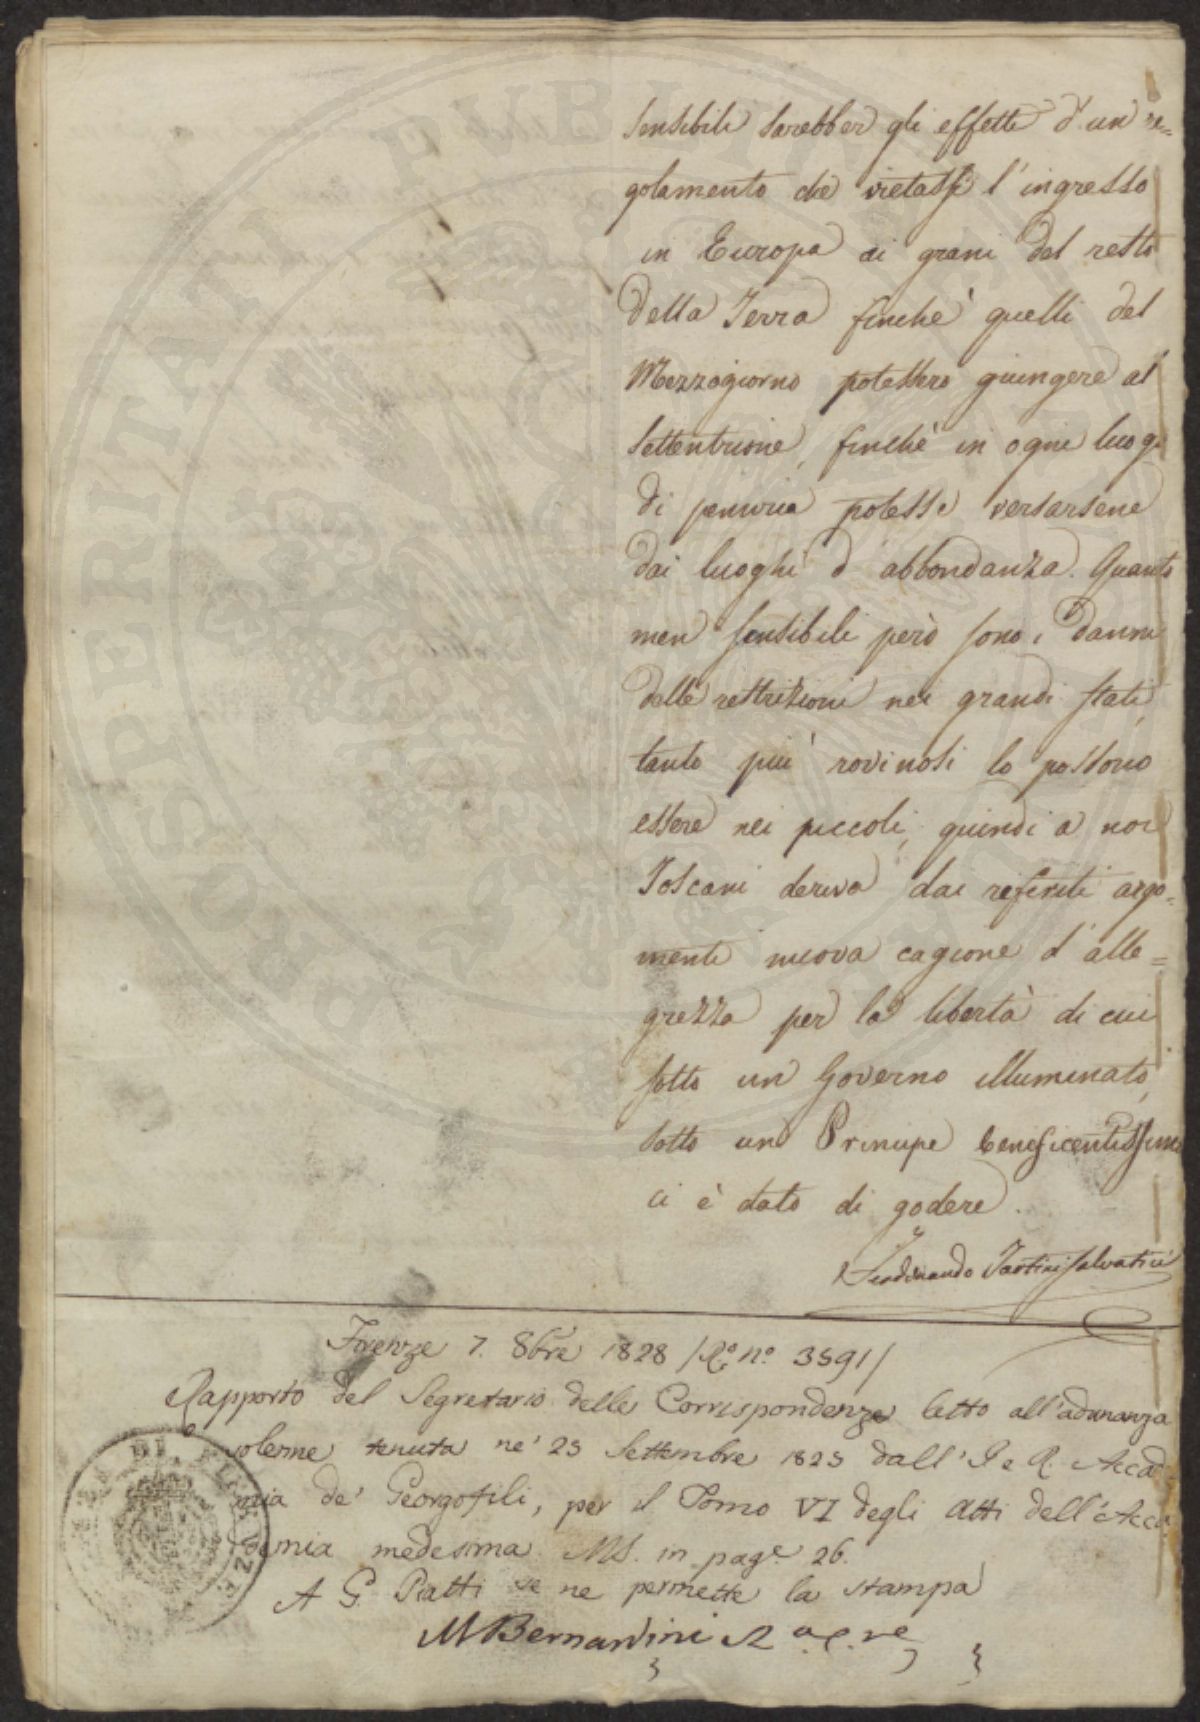 sensibili sarebber gli effetti d'un re-
golamento che vietasse l'ingresso
in Europa ai grani del resto
della Terra finchè quelli del
Mezzogiorno potessero giungere al
Settentrione, finchè in ogni luogo
di penuria potesse versarsene
dai luoghi d'abbondanza. Quanto
men sensibili però sono i danni
delle restrizioni nei grandi stati,
tanto più rovinosi lo possono
essere nei piccoli, quindi a noi
Toscani deriva dai riferiti argo=
menti nuova cagione d'alle=
grezza per la libertà di cui
sotto un Governo illuminato,
sotto un Principe beneficentissimo
ci è dato di godere.
Ferdinando Tartini Salvatici
Firenze 7. 8bre 1828 /Ro. no. 3591/
Rapporto del Segretario delle Corrispondenze letto all'adunanza
solenne tenuta ne' 23 Settembre 1823 dall'I. e R. Accade
mia de' Georgofili, per il Tomo VI degli Atti dell'Acca
demia medesima. MS. in page. 26.
A G. Piatti se ne permette la stampa
M Bernardini
PROSPERITATI PUBLICAE
DI FIRENZE